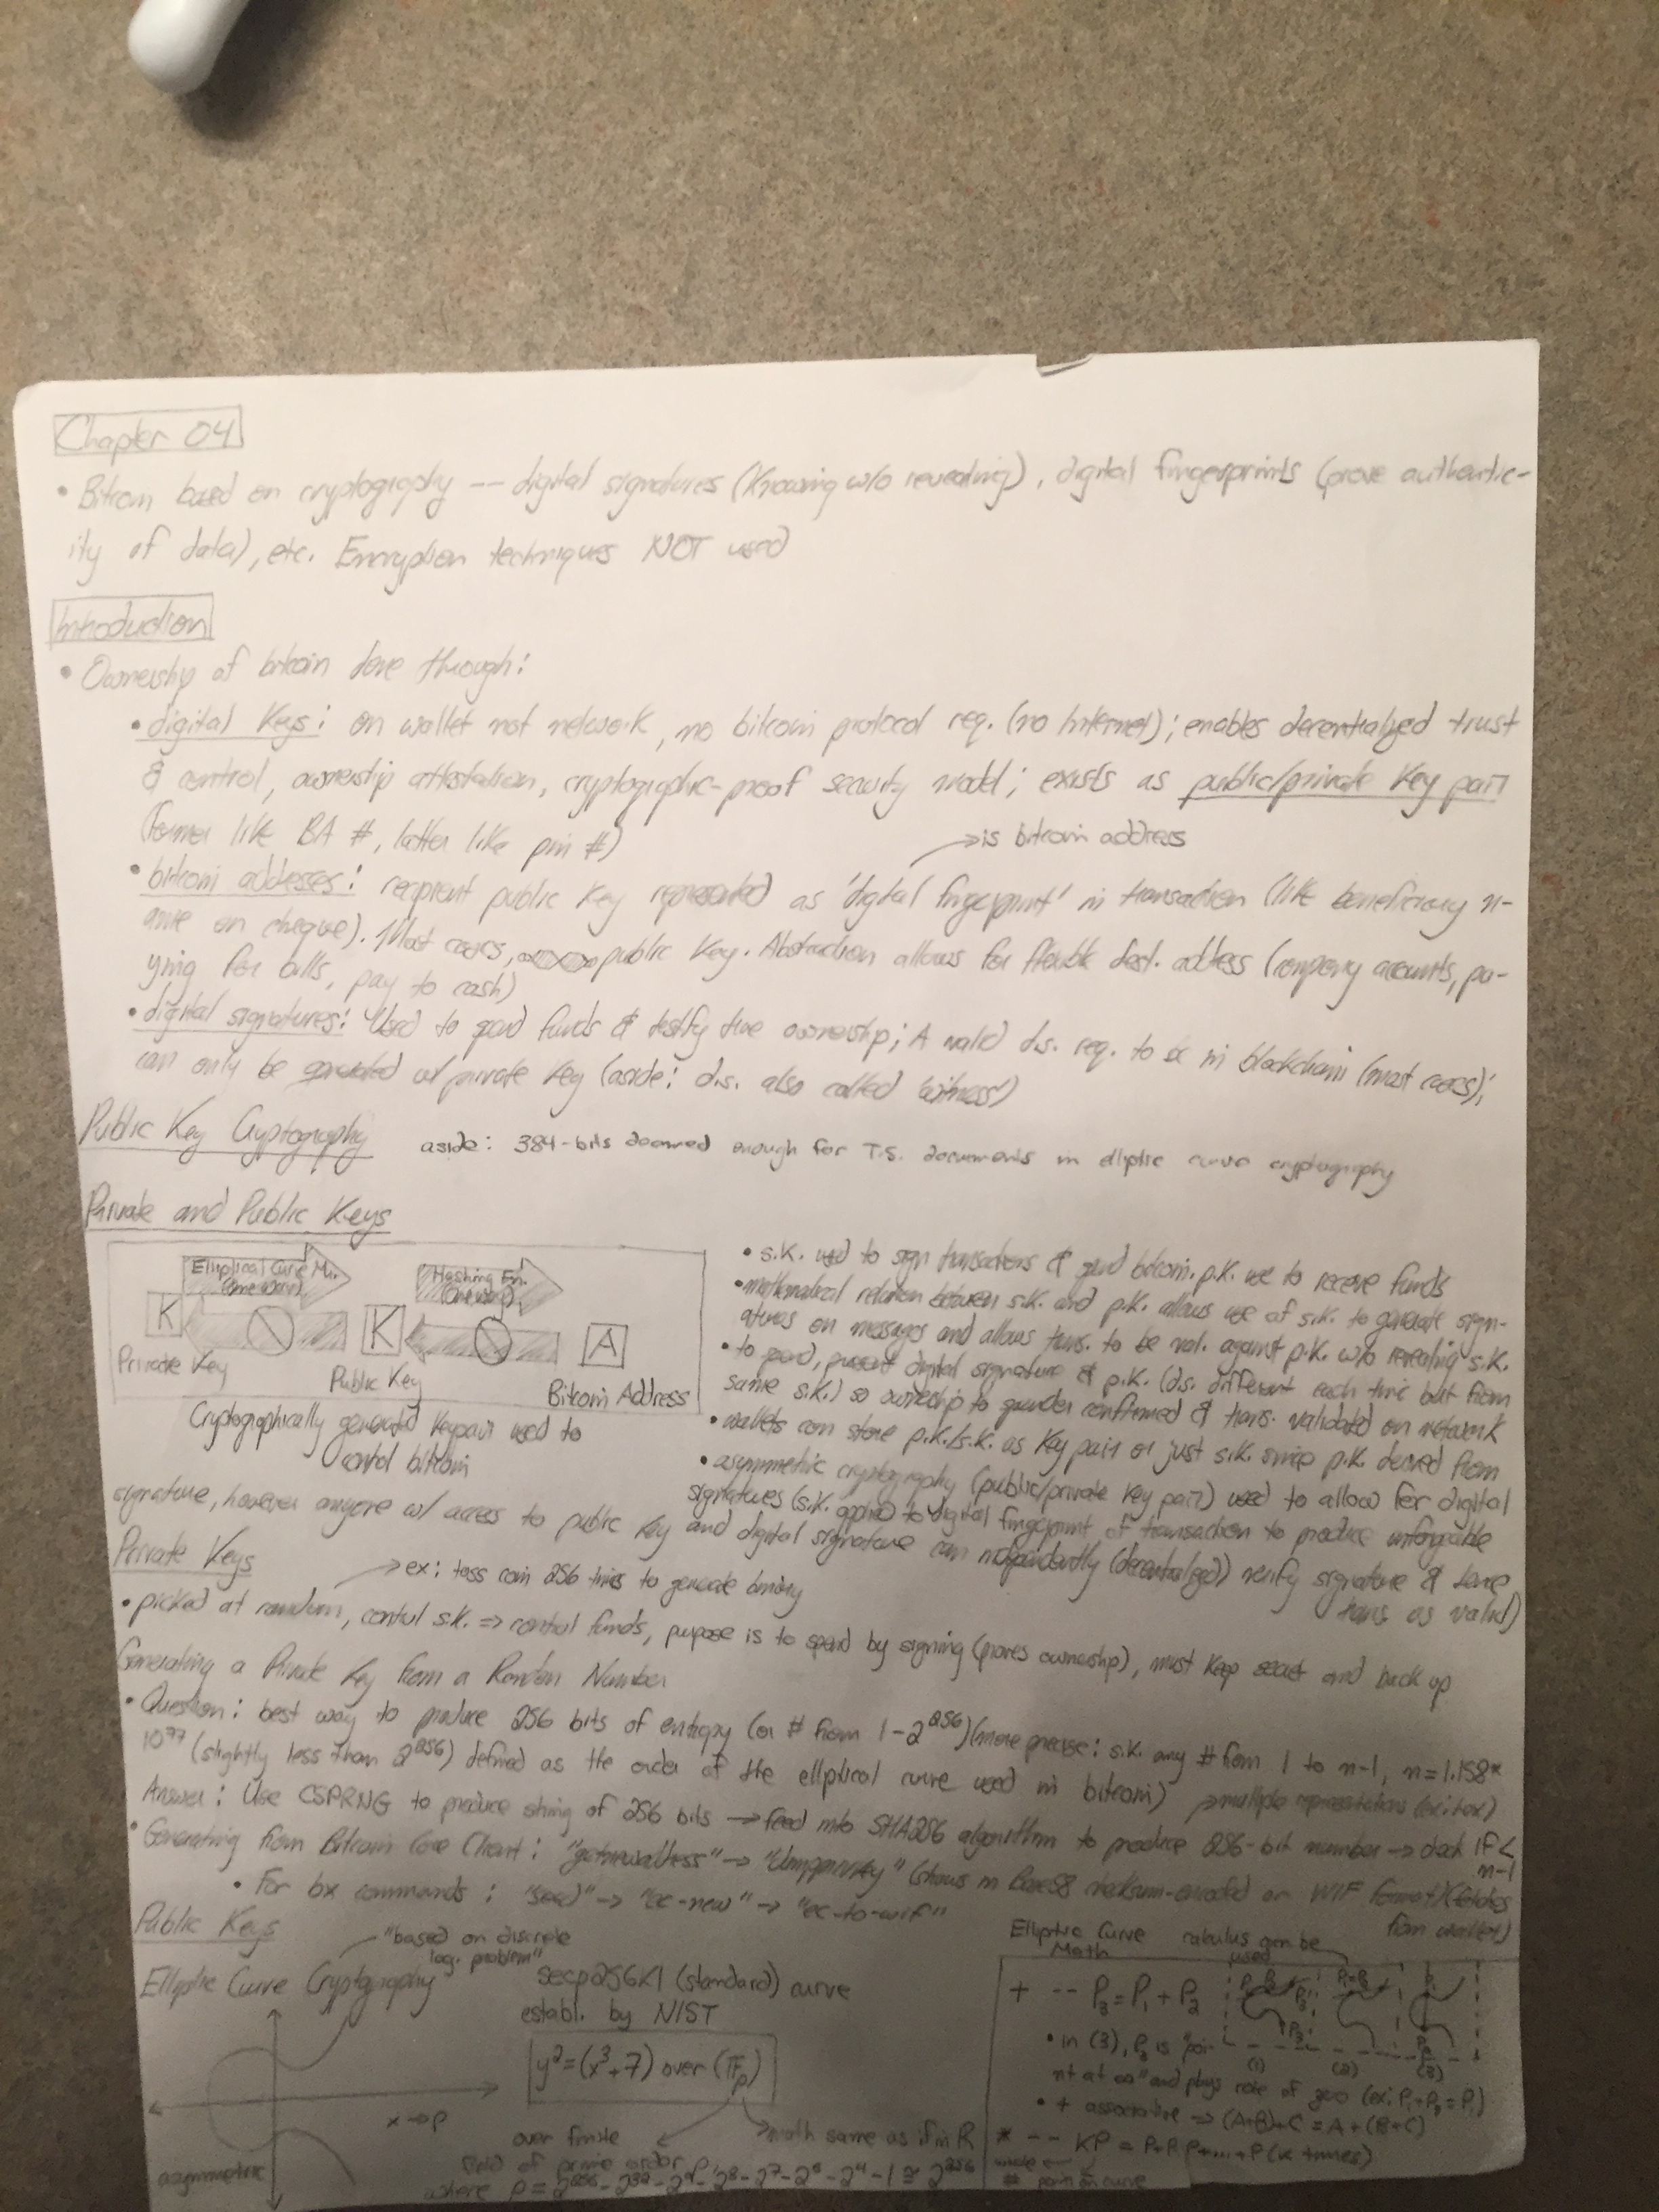 Chapter 04
• Bitcoin based on cryptography -- digital signatures (Knowing w/o revealing), digital fingerprints (prove authentic-
ity of data), etc. Encryption techniques NOT used
Introduction
• Ownership of bitcoin done through:
• digital Keys: on wallet not network, no bitcoin protocol req. (no Internet); enables decentralized trust
& control, ownership attestation, cryptographic-proof security model; exists as public/private Key pair
(former like BA #, latter like pin #)
→ is bitcoin address
• bitcoin addesses: recipient public Key represented as 'digital fingerprint' in transaction (like beneficiary n-
ame on cheque). Most cases, public Key. Abstraction allows for flexible dest. address (company accounts, pa-
ying for bills, pay to cash)
• digital signatures: Used to spend funds & testify true ownership; A valid d.s. req. to be in blockchain (most cases);
can only be generated w/ private Key (aside: d.s. also called 'witness')
Public Key Cryptography
aside: 384-bits deemed enough for T.S. documents in elliptic curve cryptography
Private and Public Keys
Elliptical Curve Mu.
(one way)
Hashing Fn.
(one way)
K
K
A
Private Key
Public Key
Bitcoin Address
Cryptographically generated Keypair used to
control bitcoin
• s.K. used to sign transactions & spend bitcoin. p.K. use to receive funds
• mathematical relation between s.K. and p.K. allows use of s.K. to generate sign-
atures on messages and allows trans. to be val. against p.K. w/o revealing s.K.
• to spend, present digital signature & p.K. (d.s. different each time but from
same s.K.) so ownership to spender confirmed & trans. validated on network
• wallets can store p.K./s.K. as Key pair or just s.K. since p.K. derived from
• asymmetric cryptography (public/private Key pair) used to allow for digital
signatures (s.K. applied to digital fingerprint of transaction to produce unforgable
signature, however anyone w/ access to public Key and digital signature can independently (decentralized) verify signature & hence
trans. as valid)
Private Keys
→ ex: toss coin 256 times to generate binary
• picked at random, control s.K. => control funds, pupose is to spend by signing (proves ownership), must Keep secret and back up
Generating a Private Key from a Random Number
• Question: best way to produce 256 bits of entropy (or # from 1-2^256) (more precise: s.K. any # from 1 to n-1, n=1.158*
10^77 (slightly less than 2^256) defined as the order of the elliptical curve used in bitcoin)
→ multiple representations (ex: hex)
Answer: Use CSPRNG to produce string of 256 bits → feed into SHA256 algorithm to produce 256-bit number → check if <
n-1
• Generating from Bitcoin Core Client: "getnewaddress" → "dumpprivkey" (shows in Base58 checksum-encoded or WIF format) (fetches
from wallet)
• For bx commands: "seed" → "ec-new" → "ec-to-wif"
Public Keys
"based on discrete
log. problem"
Elliptic Curve Cryptography
x → p
asymmetric
secp256K1 (standard) curve
establ. by NIST
y²=(x³+7) over (𝔽p)
over finite
field of prime order p,
math same as if in R
where p = 2^256 - 2^32 - 2^9 - 2^8 - 2^7 - 2^6 - 2^4 - 1 ≅ 2^256
Elliptic Curve
Math
calculus can be
used
+ -- P3 = P1 + P2
(1) (2) (3)
• in (3), P3 is "poi-
nt at ∞" and plays role of zero (ex: P1+P2=P1)
• + associative => (A+B)+C = A+(B+C)
* -- KP = P+P+P+...+P (K times)
point on curve